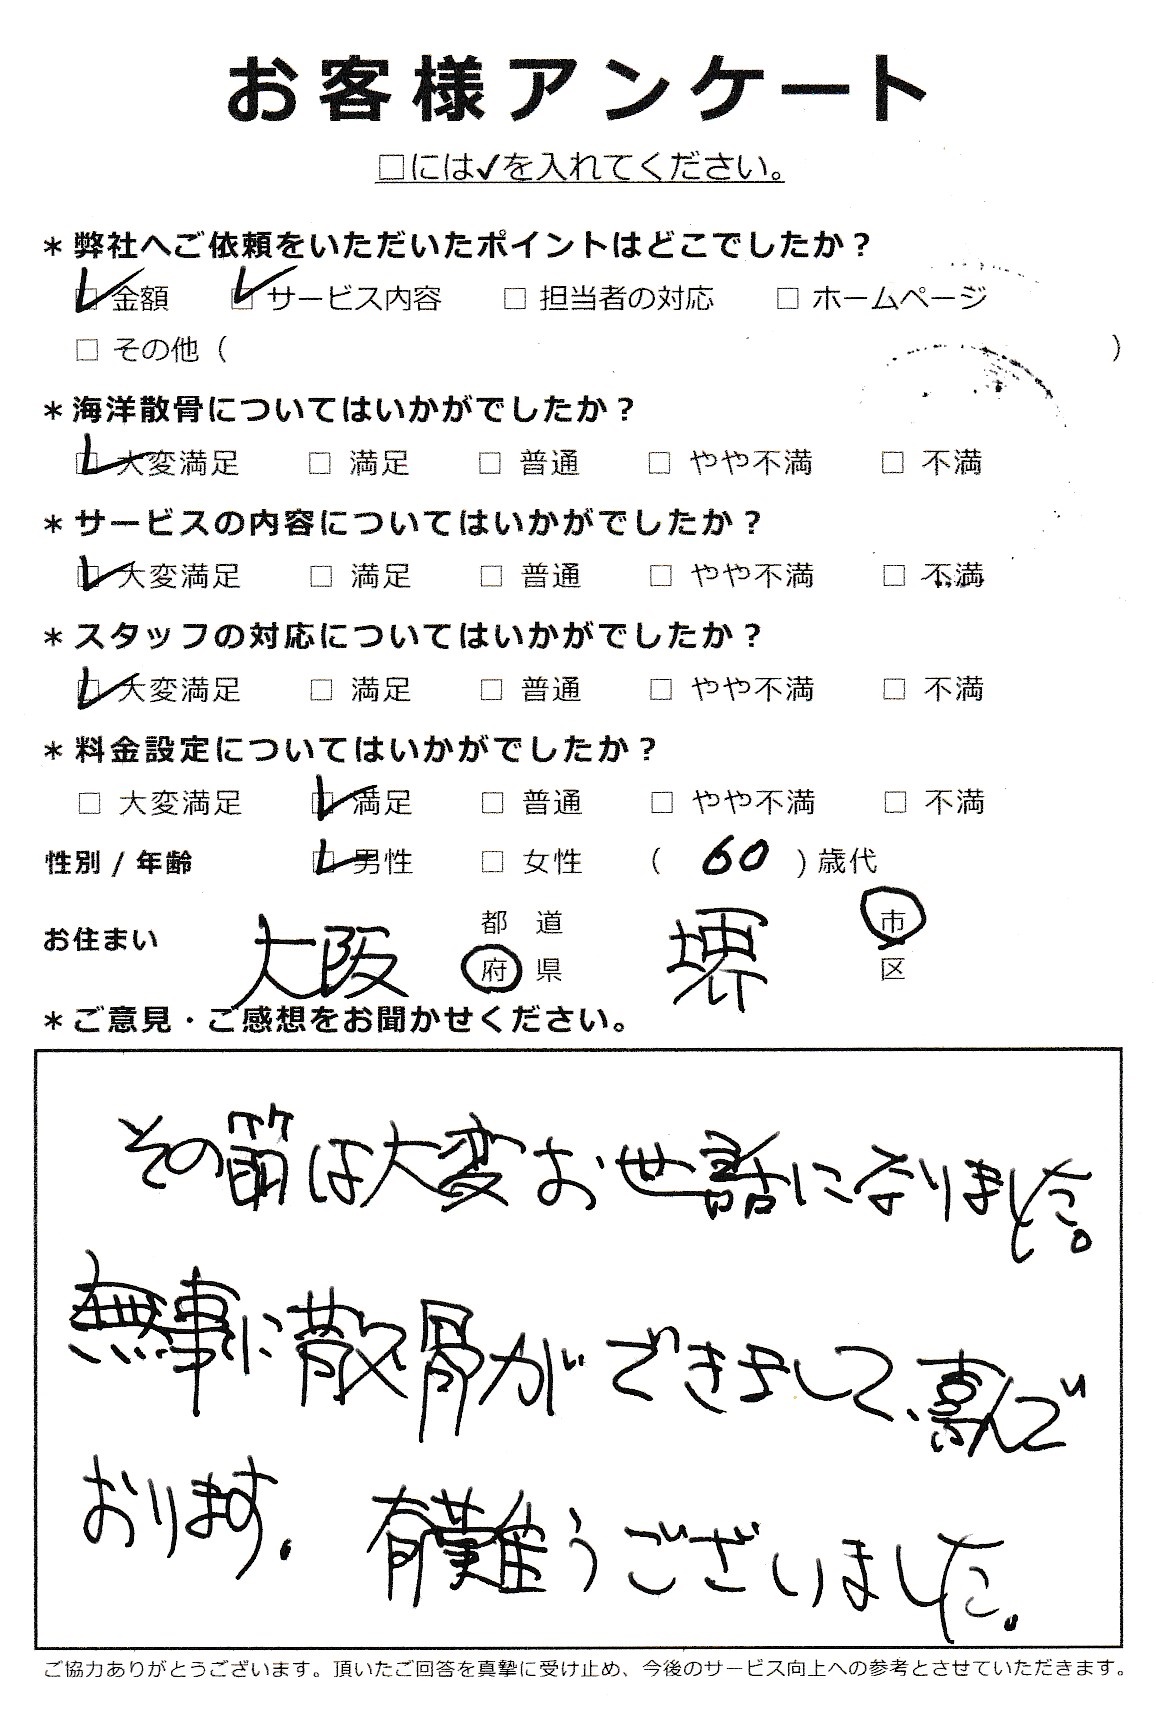 お客様アンケート
□には✓を入れてください。
＊弊社へご依頼をいただいたポイントはどこでしたか？
☑ 金額 ☑ サービス内容 □ 担当者の対応 □ ホームページ
□ その他（ ）
＊海洋散骨についてはいかがでしたか？
☑ 大変満足 □ 満足 □ 普通 □ やや不満 □ 不満
＊サービスの内容についてはいかがでしたか？
☑ 大変満足 □ 満足 □ 普通 □ やや不満 □ 不満
＊スタッフの対応についてはいかがでしたか？
☑ 大変満足 □ 満足 □ 普通 □ やや不満 □ 不満
＊料金設定についてはいかがでしたか？
□ 大変満足 ☑ 満足 □ 普通 □ やや不満 □ 不満
性別 / 年齢 ☑ 男性 □ 女性 （ 60 ）歳代
お住まい 大阪 都 道 府 県 堺 市 区
＊ご意見・ご感想をお聞かせください。
その節は大変お世話になりました。
無事に散骨ができまして、喜んで
おります。有難うございました。
ご協力ありがとうございます。頂いたご回答を真摯に受け止め、今後のサービス向上への参考とさせていただきます。